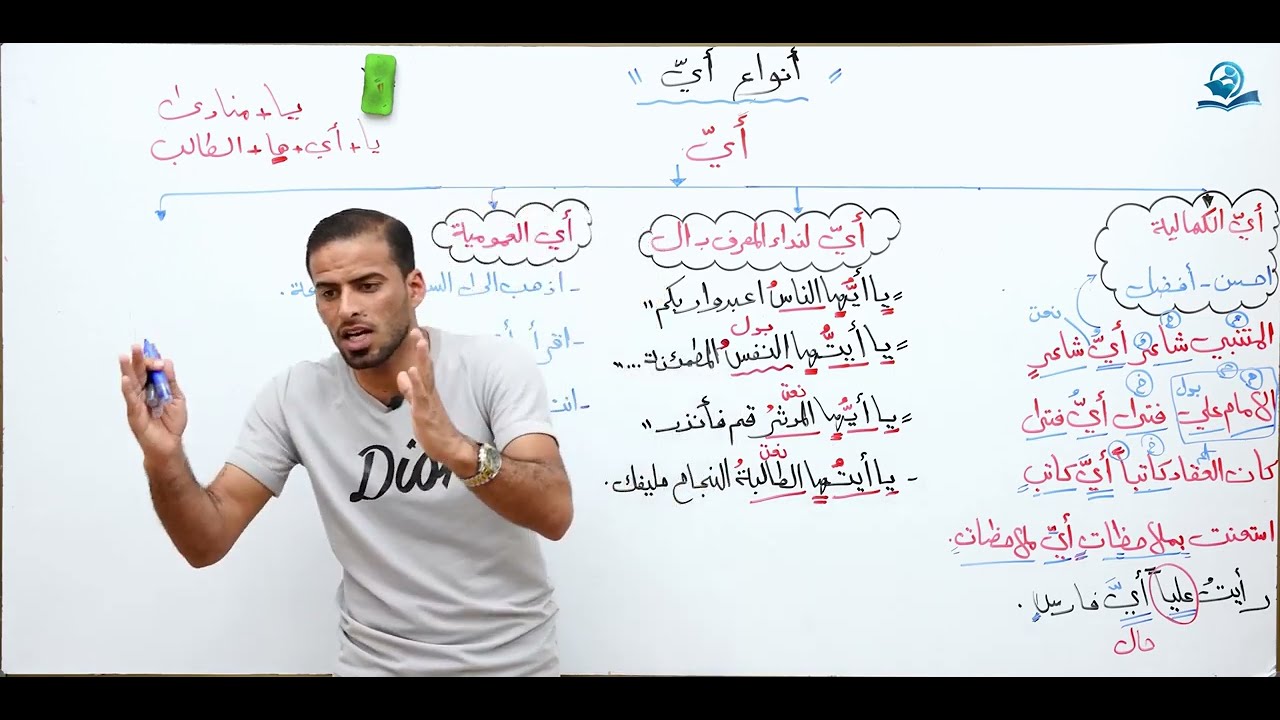 " أنواع أيّ "
أَيّ
يـا + منادى
يا + أي + ها + الطالب
أيّ الكمالية
احسن - أفضل
نعت
المتنبي شاعرٌ أيُّ شاعرٍ
بدل
الإمام علي فتى أيُّ فتى
كان العقاد كاتباً أيَّ كاتبٍ
استعنت بملاحظاتٍ أيِّ ملاحظاتٍ.
رأيتُ علياً أيَّ فارسٍ.
حال
أيّ لنداء المعرف بـ ال
"يا أيُّها الناسُ اعبدوا ربكم"
بدل
"يا أيتُّها النفسُ المطمئنة..."
نعت
"يا أيُّها المدثرُ قم فأنذر"
نعت
- يا أيتُها الطالبةُ النجاح حليفك.
أي العمومية
- اذهب الى
- اقرأ
Dior